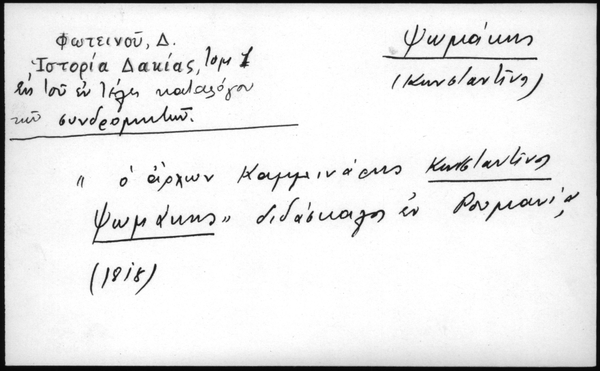 Φωτεινοῦ, Δ.
Ἱστορία Δακίας, τομ 1
ἐκ τοῦ ἐν τέλει καταλόγου
τῶν συνδρομητῶν.
Ψωμάκης
(Κωνσταντῖνος)
" ὁ ἄρχων Καμμινάρης Κωνσταντῖνος
Ψωμάκης " διδάσκαλος ἐν Ρουμανίᾳ
(1818)